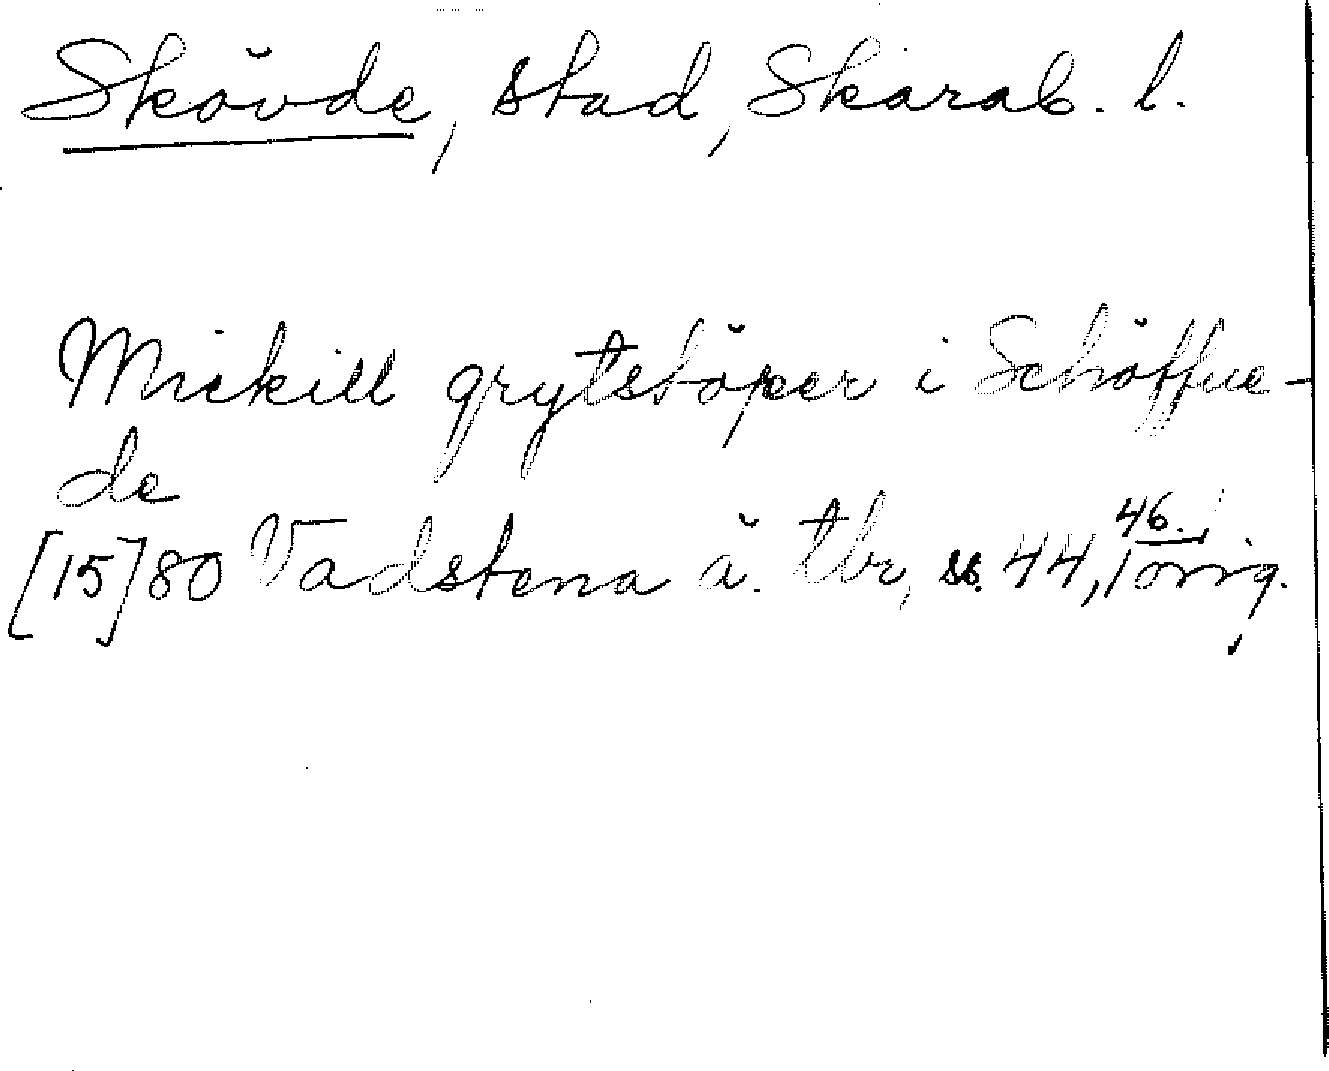 Skövde, stad, Skarab. l.
Mickill grytstöper i Schöffue-
de
[15]80 Vadstena ä. tbr, ss. 44, 46. orig.